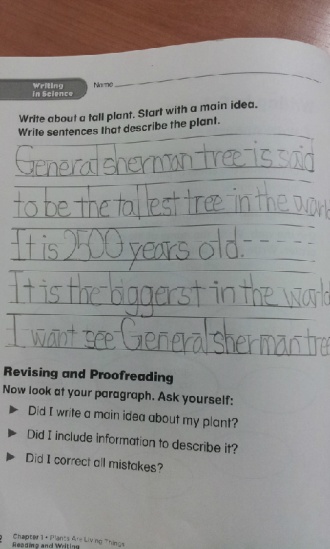 Writing
in Science
Name
Write about a tall plant. Start with a main idea.
Write sentences that describe the plant.
General sherman tree is said
to be the tallest tree in the world
It is 2500 years old.
It is the biggerst in the world
I want see General sherman tree
Revising and Proofreading
Now look at your paragraph. Ask yourself:
▶ Did I write a main idea about my plant?
▶ Did I include information to describe it?
▶ Did I correct all mistakes?
Chapter 1 • Plants Are Living Things
Reading and Writing